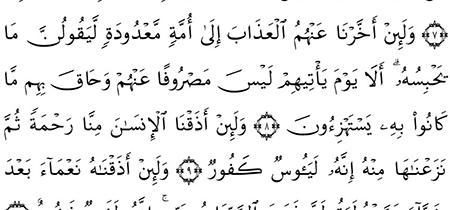 ﴿٧﴾ وَلَئِنْ أَخَّرْنَا عَنْهُمُ الْعَذَابَ إِلَىٰ أُمَّةٍ مَّعْدُودَةٍ لَّيَقُولُنَّ مَا
يَحْبِسُهُۥٓ ۗ أَلَا يَوْمَ يَأْتِيهِمْ لَيْسَ مَصْرُوفًا عَنْهُمْ وَحَاقَ بِهِم مَّا
كَانُوا۟ بِهِۦ يَسْتَهْزِءُونَ ﴿٨﴾ وَلَئِنْ أَذَقْنَا الْإِنسَـٰنَ مِنَّا رَحْمَةً ثُمَّ
نَزَعْنَـٰهَا مِنْهُ إِنَّهُۥ لَيَـُٔوسٌ كَفُورٌ ﴿٩﴾ وَلَئِنْ أَذَقْنَـٰهُ نَعْمَآءَ بَعْدَ